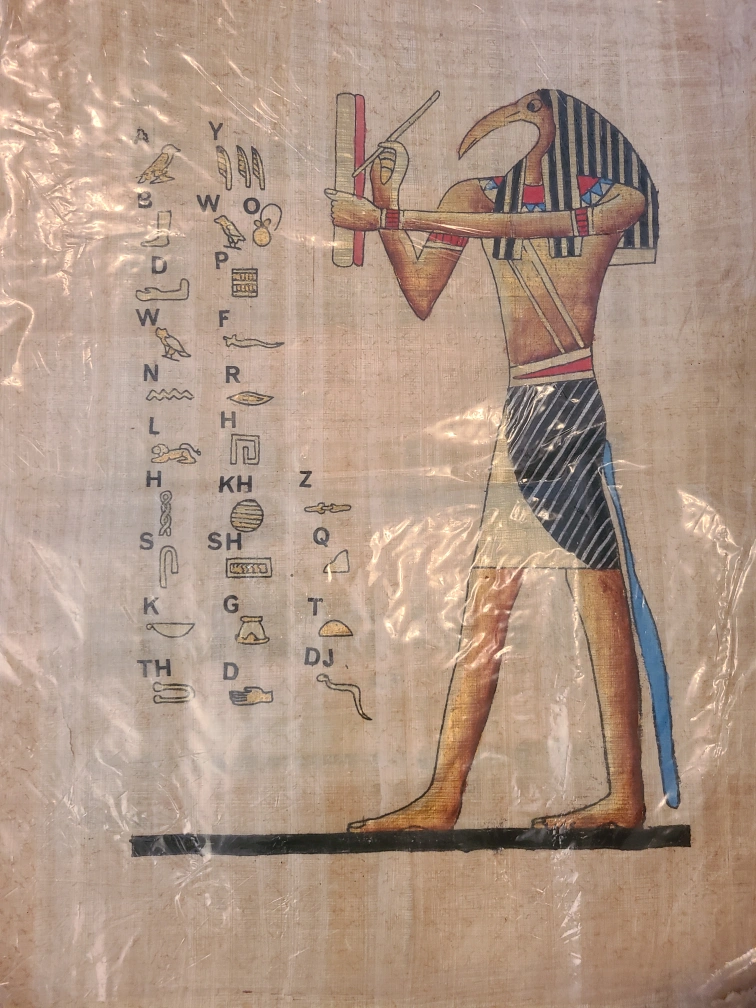 A
B
D
W
N
L
H
S
K
TH
Y
W O
P
F
R
H
KH
SH
G
D
Z
Q
T
DJ